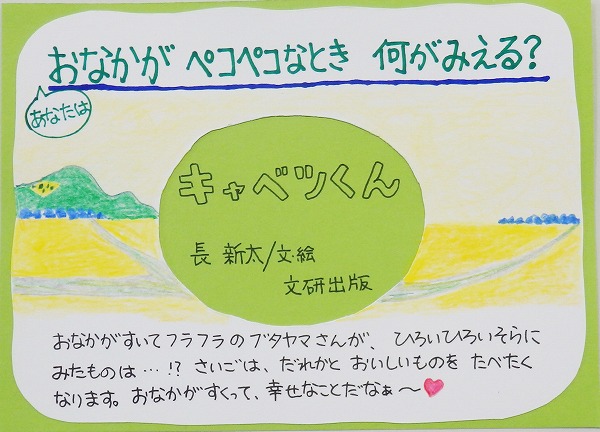 おなかが ペコペコなとき 何がみえる?
あなたは
キャベツくん
長 新太/文・絵
文研出版
おなかがすいてフラフラのブタヤマさんが、ひろいひろいそらに
みたものは…!? さいごは、だれかと おいしいものを たべたく
なります。おなかがすくって、幸せなことだなぁ〜♥